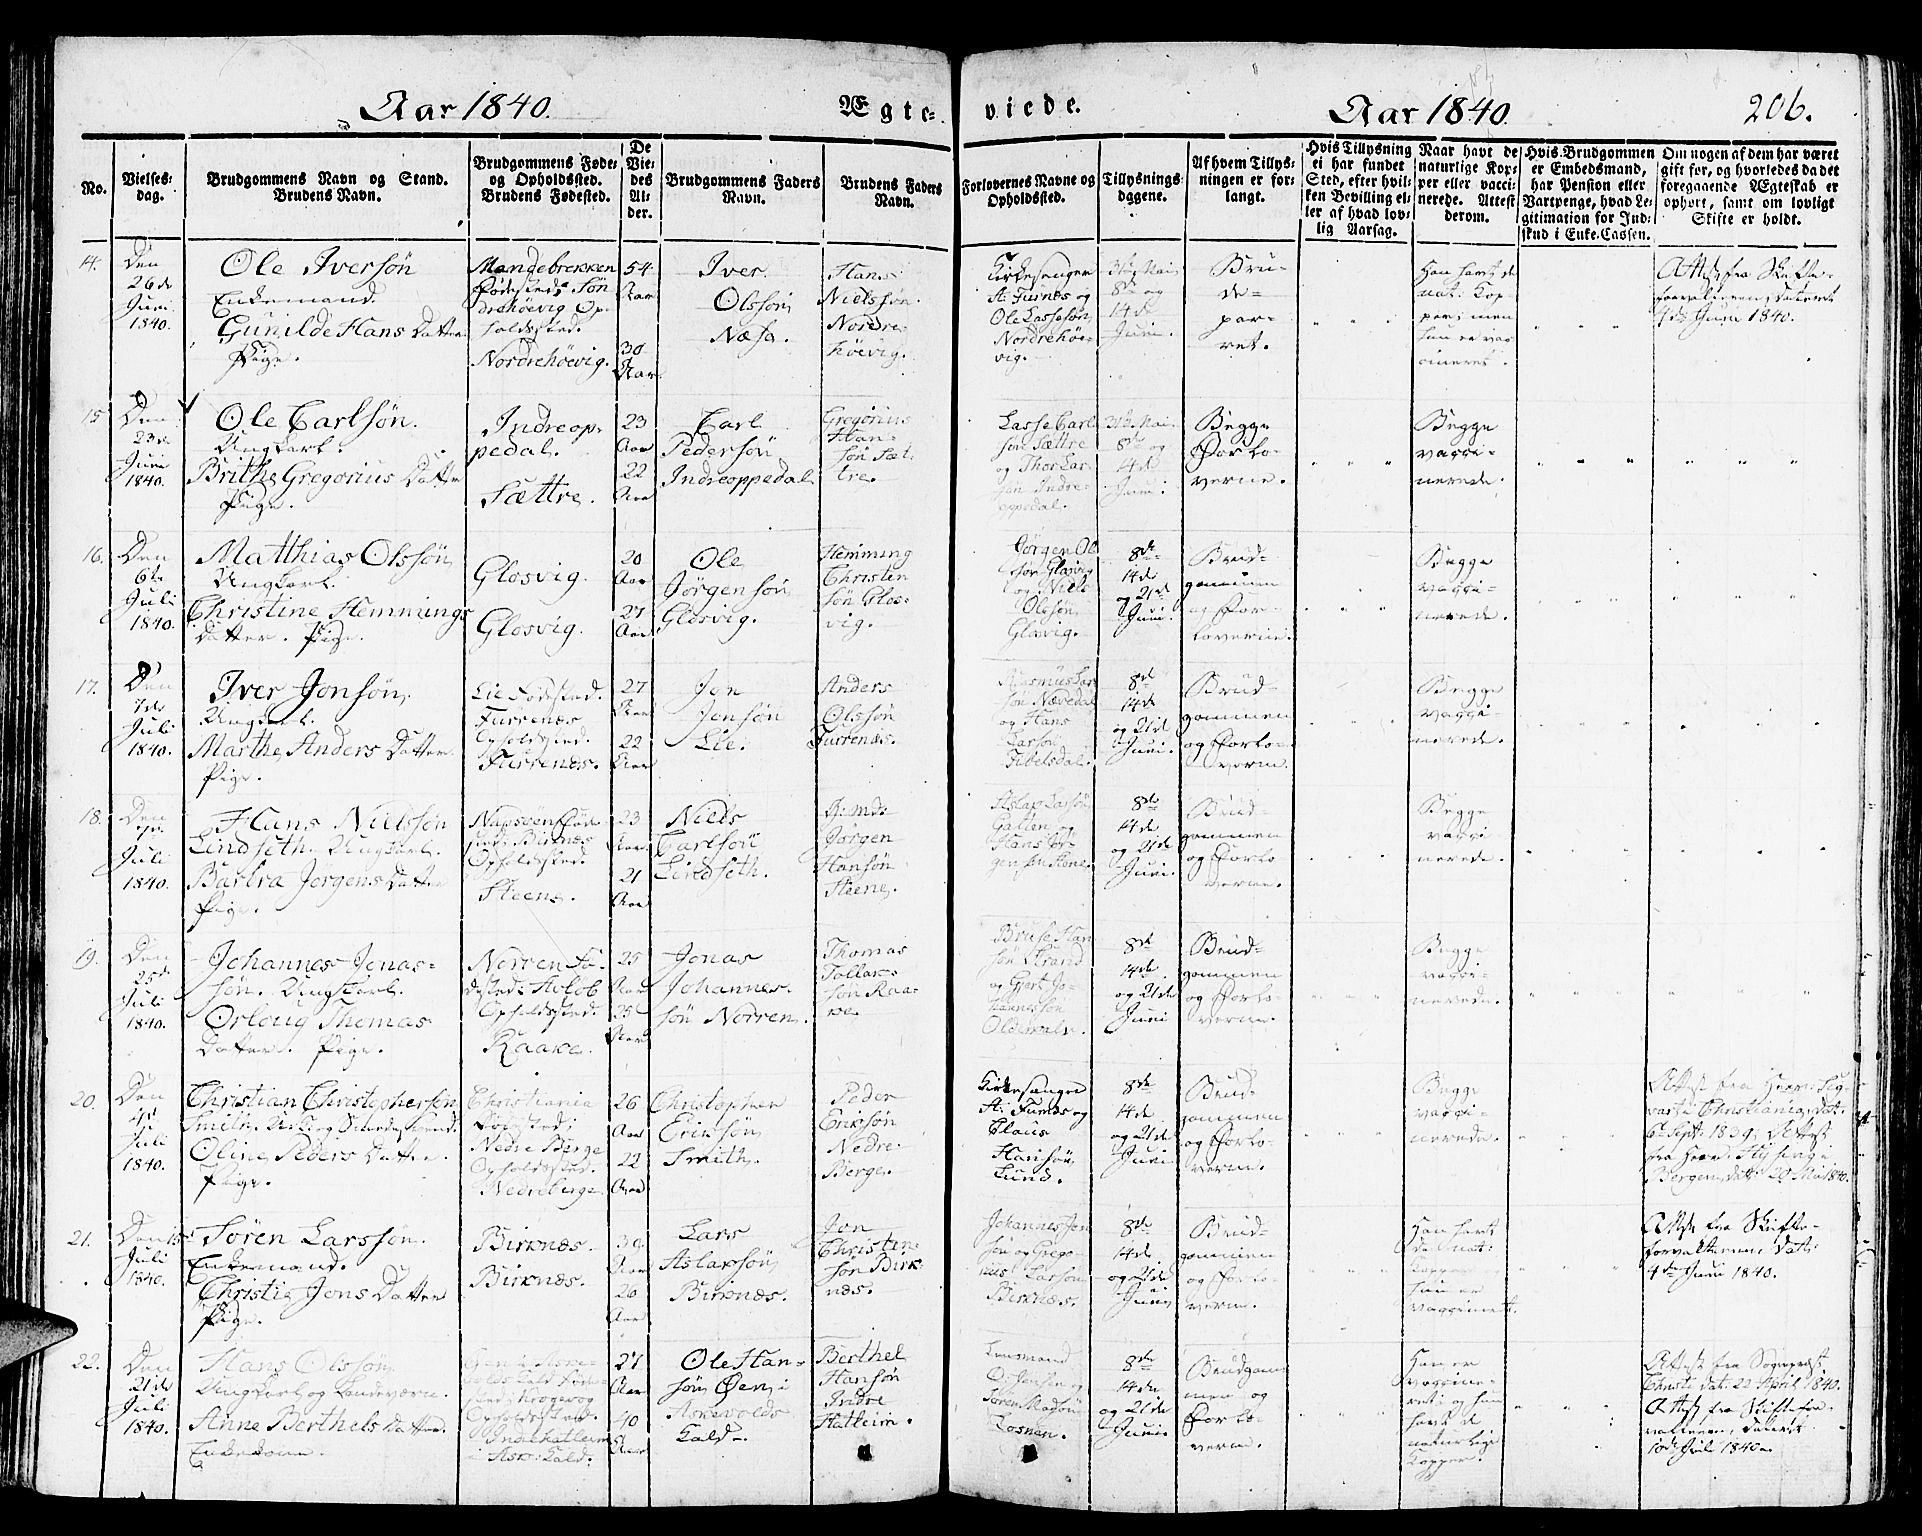 Aar 1840.
Ægte-
viede.
Aar 1840.
206.
No.
Vielses-
dag.
Brudgommens Navn og Stand.
Brudens Navn.
Brudgommens Føde-
og Opholdssted.
Brudens Fødested.
De
Vie-
des
Al-
der.
Brudgommens Faders
Navn.
Brudens Faders
Navn.
Forlovernes Navne og
Opholdssted.
Tillysnings-
dagene.
Af hvem Tillys-
ningen er for-
langt.
Hvis Tillysning
ei har fundet
Sted, efter hvil-
ken Bevilling el-
ler af hvad lov-
lig Aarsag.
Naar havt de
naturlige Kop-
per eller vacci-
nerede. Attest
derom.
Hvis Brudgommen
er Embedsmand,
har Pension eller
Vartpenge, hvad Le-
gitimation for Ind-
skud i Enke-Cassen.
Om nogen af dem har været
gift før, og hvorledes da det
foregaaende Ægteskab er
ophørt, samt om lovligt
Skifte er holdt.
14.
Den
26de
Juni
1840.
Ole Iversøn
Enkemand.
Gunilde Hans Datter
Pige.
Mangebrekken
Fødested; Søn
drehøevig Op-
holdssted.
Nordrehöevig.
54
Aar
30
Aar
Iver
Olssøn
Næse
Hans
Nielssøn
Nordre-
höevig.
Kirkesanger
A: Furnes og
Ole Lassesøn
Nordrehöe-
vig.
31te Mai,
8de og
14de
Juni.
Bru-
de-
par-
ret.
Han havt de
nat: Kop-
per; men
hun er vac-
cineret.
Attest fra Skifte-
forvalteren, dateret
4de Juni 1840.
15
Den
23de
Juni
1840.
Ole Carlsøn.
Ungkarl.
Brithe Gregorius Datter
Pige.
Indreop-
pedal.
Sættre.
23
Aar
22
Aar
Carl
Pedersøn
Indreoppedal
Gregorius
Han-
søn Sæt-
tre.
Lasse Carl
søn Sættre
og Thor Lar-
søn Indre-
oppedal.
31te Mai.
8de og
14de
Juni.
Begge
Forlo-
verne.
Begge
vacci-
nerede.
16.
Den
6te
Juli
1840.
Matthias Olssøn
Ungkarl.
Christine Hemmings
Datter. Pige.
Glosvig.
Glosvig.
20
Aar
27
Aar
Ole
Jørgensøn
Glosvig.
Hemming
Christen
søn Glos-
vig.
Jørgen Ol
søn Glosvig
og Niels
Olssøn,
Glosvig.
8de
14de
og 21de
Juni.
Brud-
gommen
og For-
loverne.
Begge
vacci-
nerede.
17.
Den
7de
Juli
1840.
Iver Jonsøn,
Ungkarl.
Marthe Anders Datter.
Pige.
Lie Fødested.
Furrenæs
Opholdssted.
Furrenæs.
27
Aar
22
Aar
Jon
Jensøn
Lie.
Anders
Olssøn
Furrenæs.
Rasmus Lar
søn Nævedal
og Hans
Larsøn
Tibelsdal.
8de
14de
og 21de
Juni.
Brud-
gommen
og Forlo-
verne.
Begge
vacci-
nerede.
18.
Den
7de
Juli
1840.
Hans Nielssøn
Lindseth. Ungkarl.
Barbra Jørgens Datter
Pige.
Birknæs
Opholdssted.
Steene.
23
Aar
21
Aar
Niels
Carlsøn
Lindseth.
Jørgen
Hansøn
Steene.
Aslak Larsøn
og
Hans Jör-
gensøn Stene.
8de
14de
og 21de
Juni.
Brud-
gommen
og Forlo-
verne.
Begge
vacci-
nerede.
19.
Den
25de
Juli
1840.
Johannes Jonas-
søn. Ungkarl.
Orloug Thomas
Datter. Pige.
Norren Fö-
Opholdssted.
Raake.
25
Aar
25
Aar
Jonas
Johannes-
søn Norren.
Thomas
Tollak-
søn Raa-
ke.
Bruse Han
søn Strand
og Gjert Jo-
hannessøn
8de
14de
og 21de
Juni
Brud-
gommen
og Forlo-
verne.
Begge
vacci-
nerede.
20.
Den
Juli
1840.
Christian Christophersøn
Smith.
Oline Peders Datter.
Pige.
Christiania
Fødested;
Nedre Berge
Opholdssted.
Nedreberge
26
Aar
22
Aar
Christopher
Eriksøn
Smith.
Peder
Eriksøn
Nedre-
Berge.
Kirkesanger
A: Furnes og
Claus
Hansøn
Lund.
8de
14de
og 21de
Juni
Brud-
gommen
og Forlo-
verne.
Begge
vacci-
nerede.
Attest fra
Christiania, dat.
6 Sept: 1839, Attest
fra
Bergen, dat: 20 Mai 1840.
21.
Den 15
Juli
1840.
Søren Larssøn.
Enkemand.
Christie Jons Datter
Pige.
Birknæs.
Birknæs.
39
Aar
26
Aar
Lars
Aslaksøn
Birknæs.
Jon
Christen-
søn Birk-
næs.
Johannes Jon
søn og Grego-
rius Larsøn
Birknæs.
8de
14de
og 21de
Juni
Brud-
gommen
og Forlo-
verne.
Han havt
de nat:
Kopper
hun er
vaccineret.
Attest fra Skifte-
forvalteren, dat:
4de Juni 1840.
22.
Den
21de
Juli
1840.
Hans Olssøn
Ungkarl og Landeværn.
Anne Berthels Datter.
Enkekone.
Opholdssted.
Indrehatleim
i Ask: Kald.
27
Aar
40
Aar
Ole Han-
søn, Øen i
Askevolds
Kald.
Berthel
Hansøn
Indre
Hatleim.
Lensmand
og
Søren Madsøn
Losnen.
8de
14de
og 21de
Juni.
Brudgom-
men og
Forlo-
verne.
Han er
vaccine-
ret; og hun
havt de
naturlige
Kopper.
Attest fra Sognepræst
Christi dat: 22 April 1840.
Attest fra Skiftefor-
valteren, dateret
10de Juli 1840.